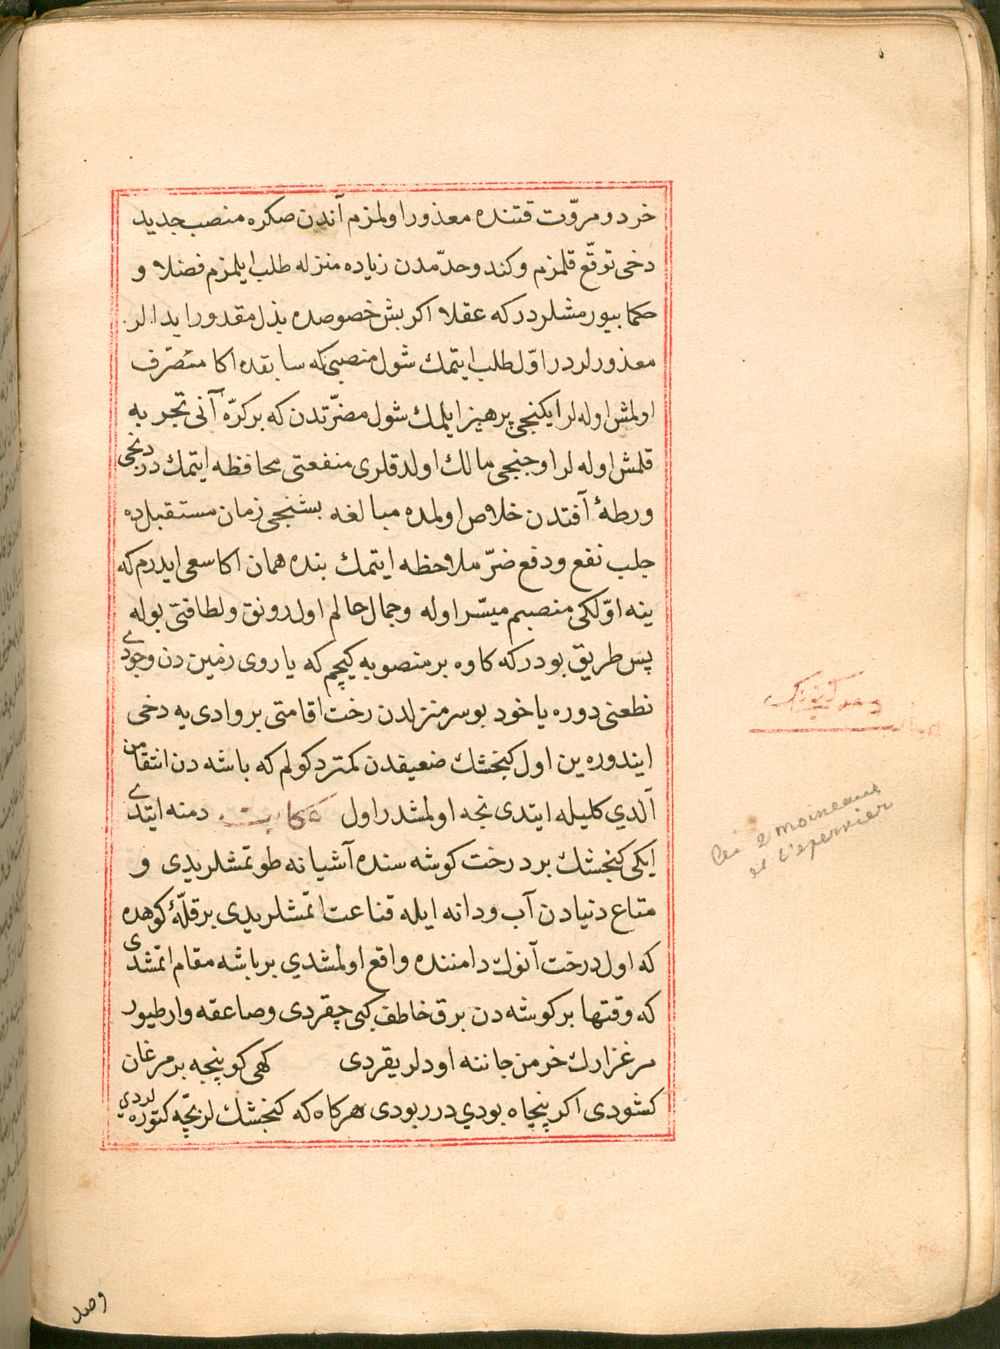 خرد و مروّت قتنده معذور اولمزم آندن صكره منصب جديد
دخى توقّع قلمزم وكند وحدّمدن زياده منزله طلب ايلمزم فضلا و
حكما بيورمشلردر كه عقلا اكر بش خصوصده بذل مقدور ايدالر
معذورلردر اوّل طلب ايتمك شول منصبى كه سابقده اكا متصرّف
اولمش اوله لر ايكنجى پرهيز ايلمك شول مضرّتدن كه بر كرّه آنى تجربه
قلمش اوله لر اوجنجى مالك اولدقلرى منفعتى محافظه ايتمك دردنجى
ورطهٔ آفتدن خلاص اولمده مبالغه بشنجى زمان مستقبلده
جلب نفع ودفع ضرّ ملاحظه ايتمك بنده همان اكا سعى ايدرم كه
ينه اوّلكى منصبم ميسّر اوله وجمال حالم اول رونق ولطافتى بوله
پس طريق بودر كه كاوه بر منصوبه كيچم كه يا روى زمين دن وجودى
نطعنى دوره يا خود بو سر منزلدن رخت اقامتى بر وادى يه دخى
ايندوره بن اول كنجشك ضعيفدن كمتر دكولم كه باشه دن انتقامن
آلدي كليله ايتدى نجه اولمشدر اول حكايت دمنه ايتدى
ايكى كنجشك بر درخت كوشه سنده آشيانه طوتمشلريدى و
متاع دنيادن آب ودانه ايله قناعت اتمشلريدى بر قلّهٔ كوهده
كه اول درخت آنوك دامننده واقع اولمشدي بر باشه مقام اتمشدى
كه وقتها بر كوشه دن برق خاطف كبى چقردى وصاعقه وار طيور
مرغزارك خرمن جاننه اودلر يقردى كهى كو پنجه بر مرغان
كشودى اكر پنجاه بودي در ربودى هركاه كه كنجشك لر بچّه كتوره لردي
Les 2 moineaux
et l'épervier
وصد